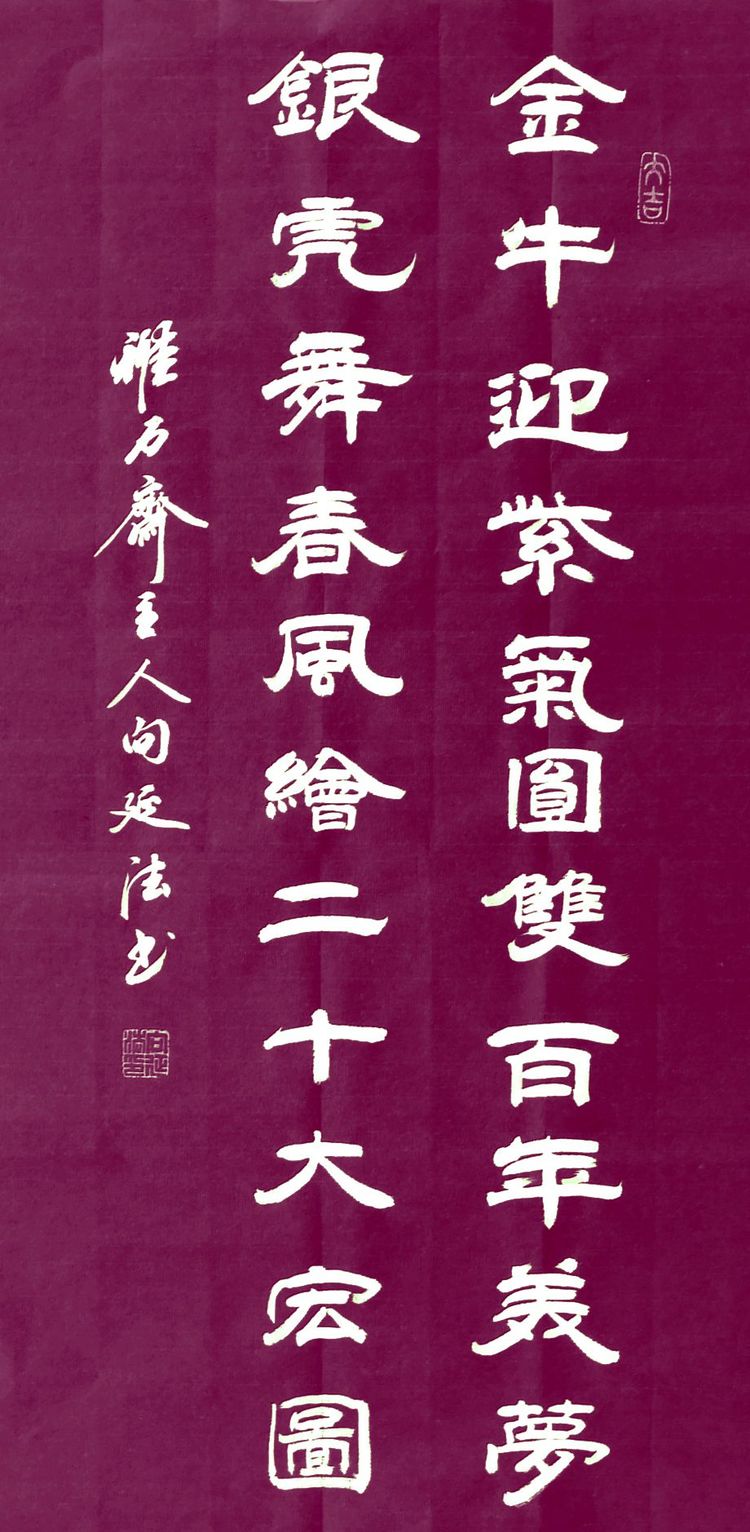 大吉
金牛迎紫氣圓雙百年美夢
銀虎舞春風繪二十大宏圖
雅石齋主人向延法书